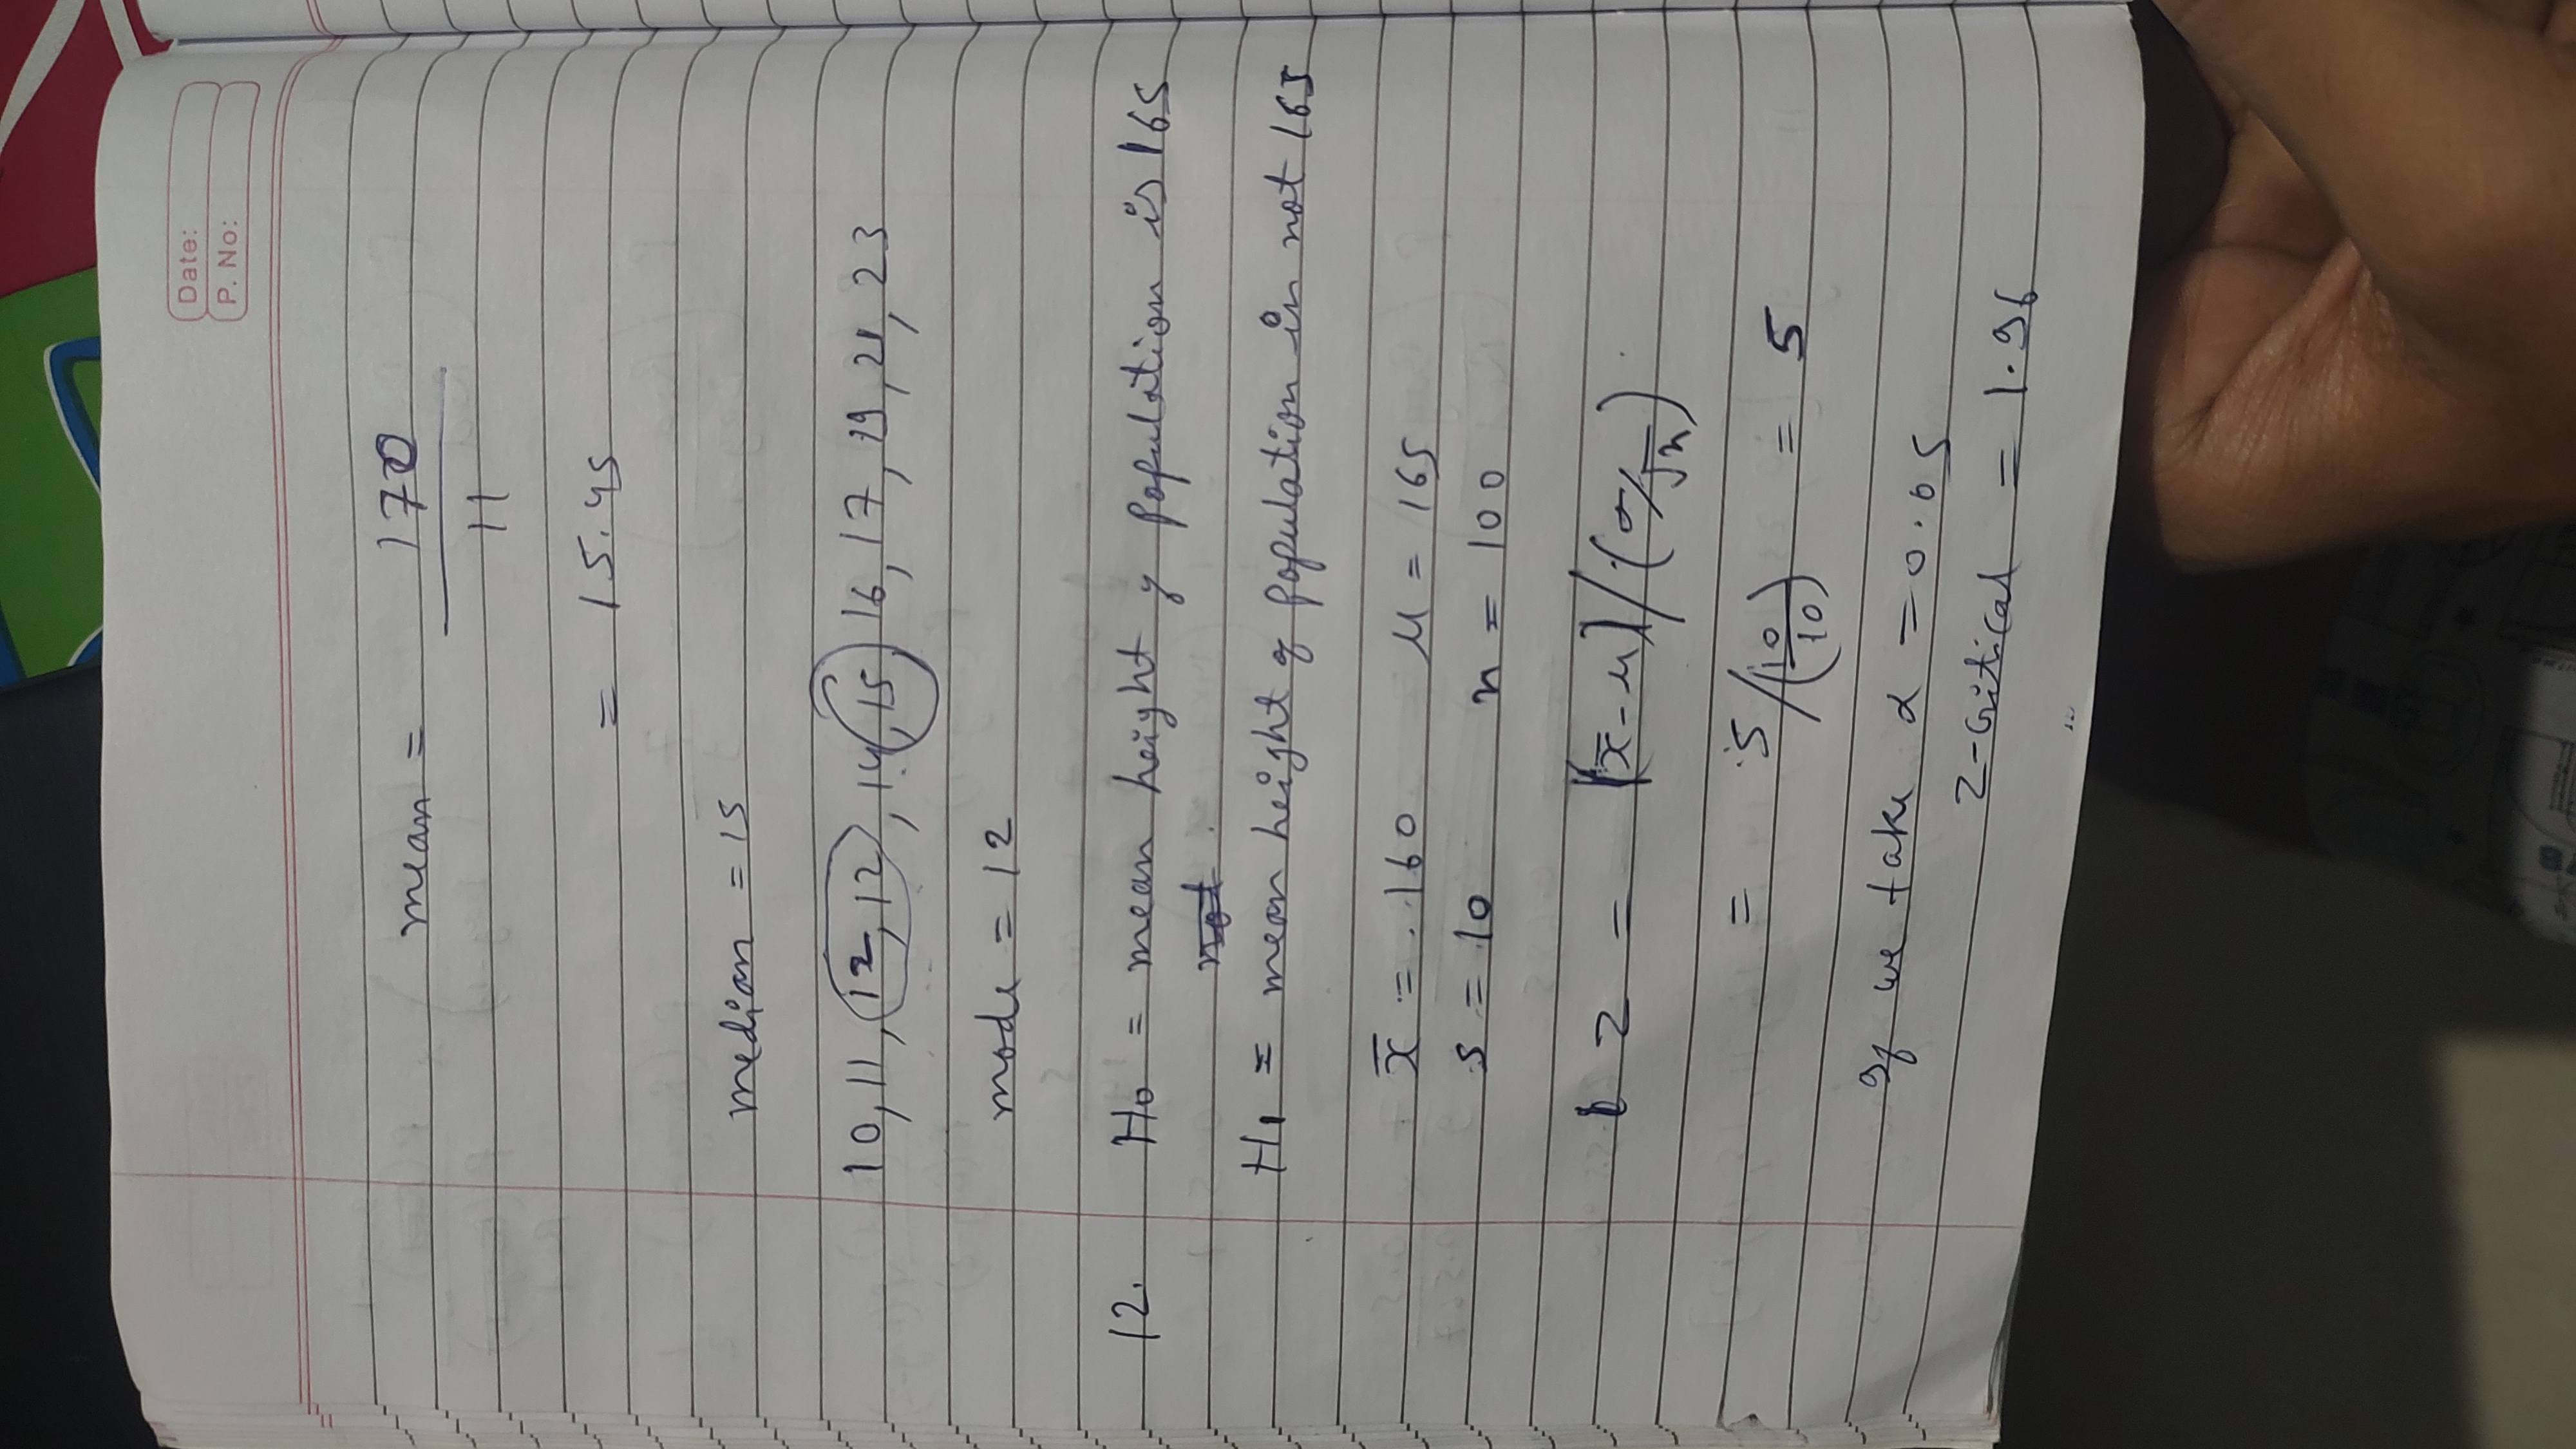 Date:
P. No:
mean = 170
11
= 15.45
median = 15
10, 11, 12, 12, 14, 15, 16, 17, 19, 21, 23
mode = 12
12. H0 = mean height of population is 165
not
H1 = mean height of population is not 165
x̄ = 160 μ = 165
s = 10 n = 100
Z = |x̄-μ| / (σ/√n)
= 5 / (10/10) = 5
If we take α = 0.05
Z-critical = 1.96